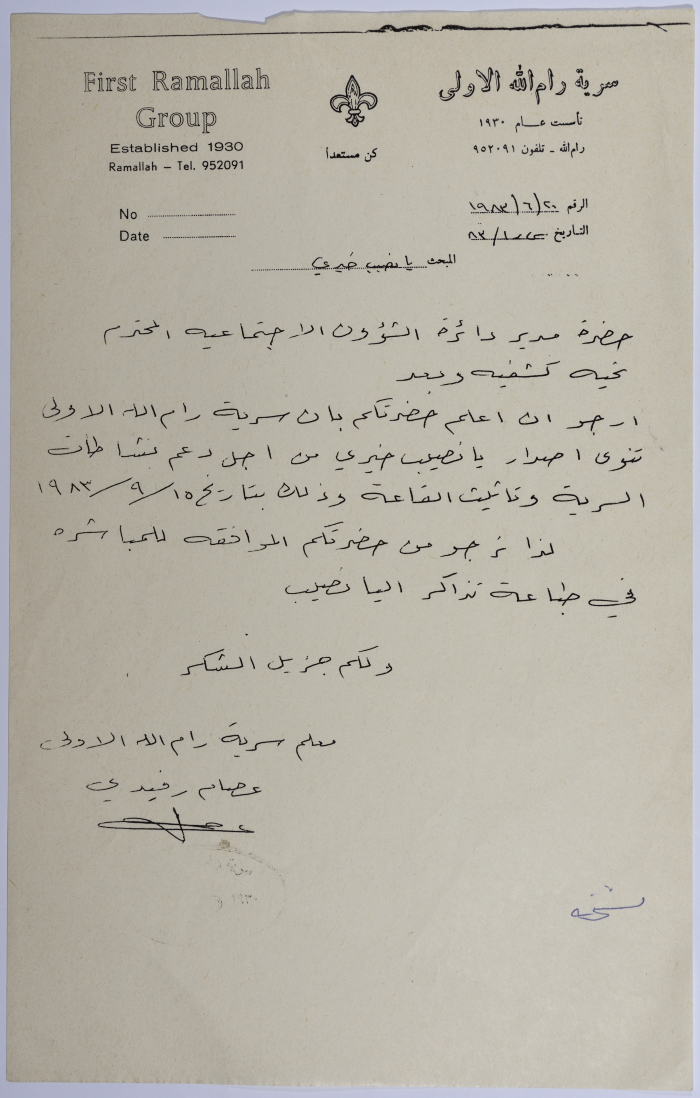 First Ramallah
Group
Established 1930
Ramallah – Tel. 952091
No
Date
سرية رام الله الاولى
تأسست عام ١٩٣٠
رام الله - تلفون ٩٥٢٠٩١
كن مستعداً
الرقم ٢٠/٦/١٩٨٣
التاريخ
المبحث يا نصيب خيري
حضرة مدير دائرة الشؤون الاجتماعيه المحترم
تحيه كشفيه وبعد
ارجو ان اعلم حضرتكم بان سرية رام الله الاولى
تنوى اصدار يا نصيب خيري من اجل دعم نشاطات
السرية وتاثيث القاعة وذلك بتاريخ ١٥/٩/١٩٨٣
لذا نرجو من حضرتكم الموافقه للمباشره
في طباعة تذاكر اليا نصيب
ولكم جزيل الشكر
معلم سرية رام الله الاولى
عصام رفيدي
١٩٣٠
نسخه